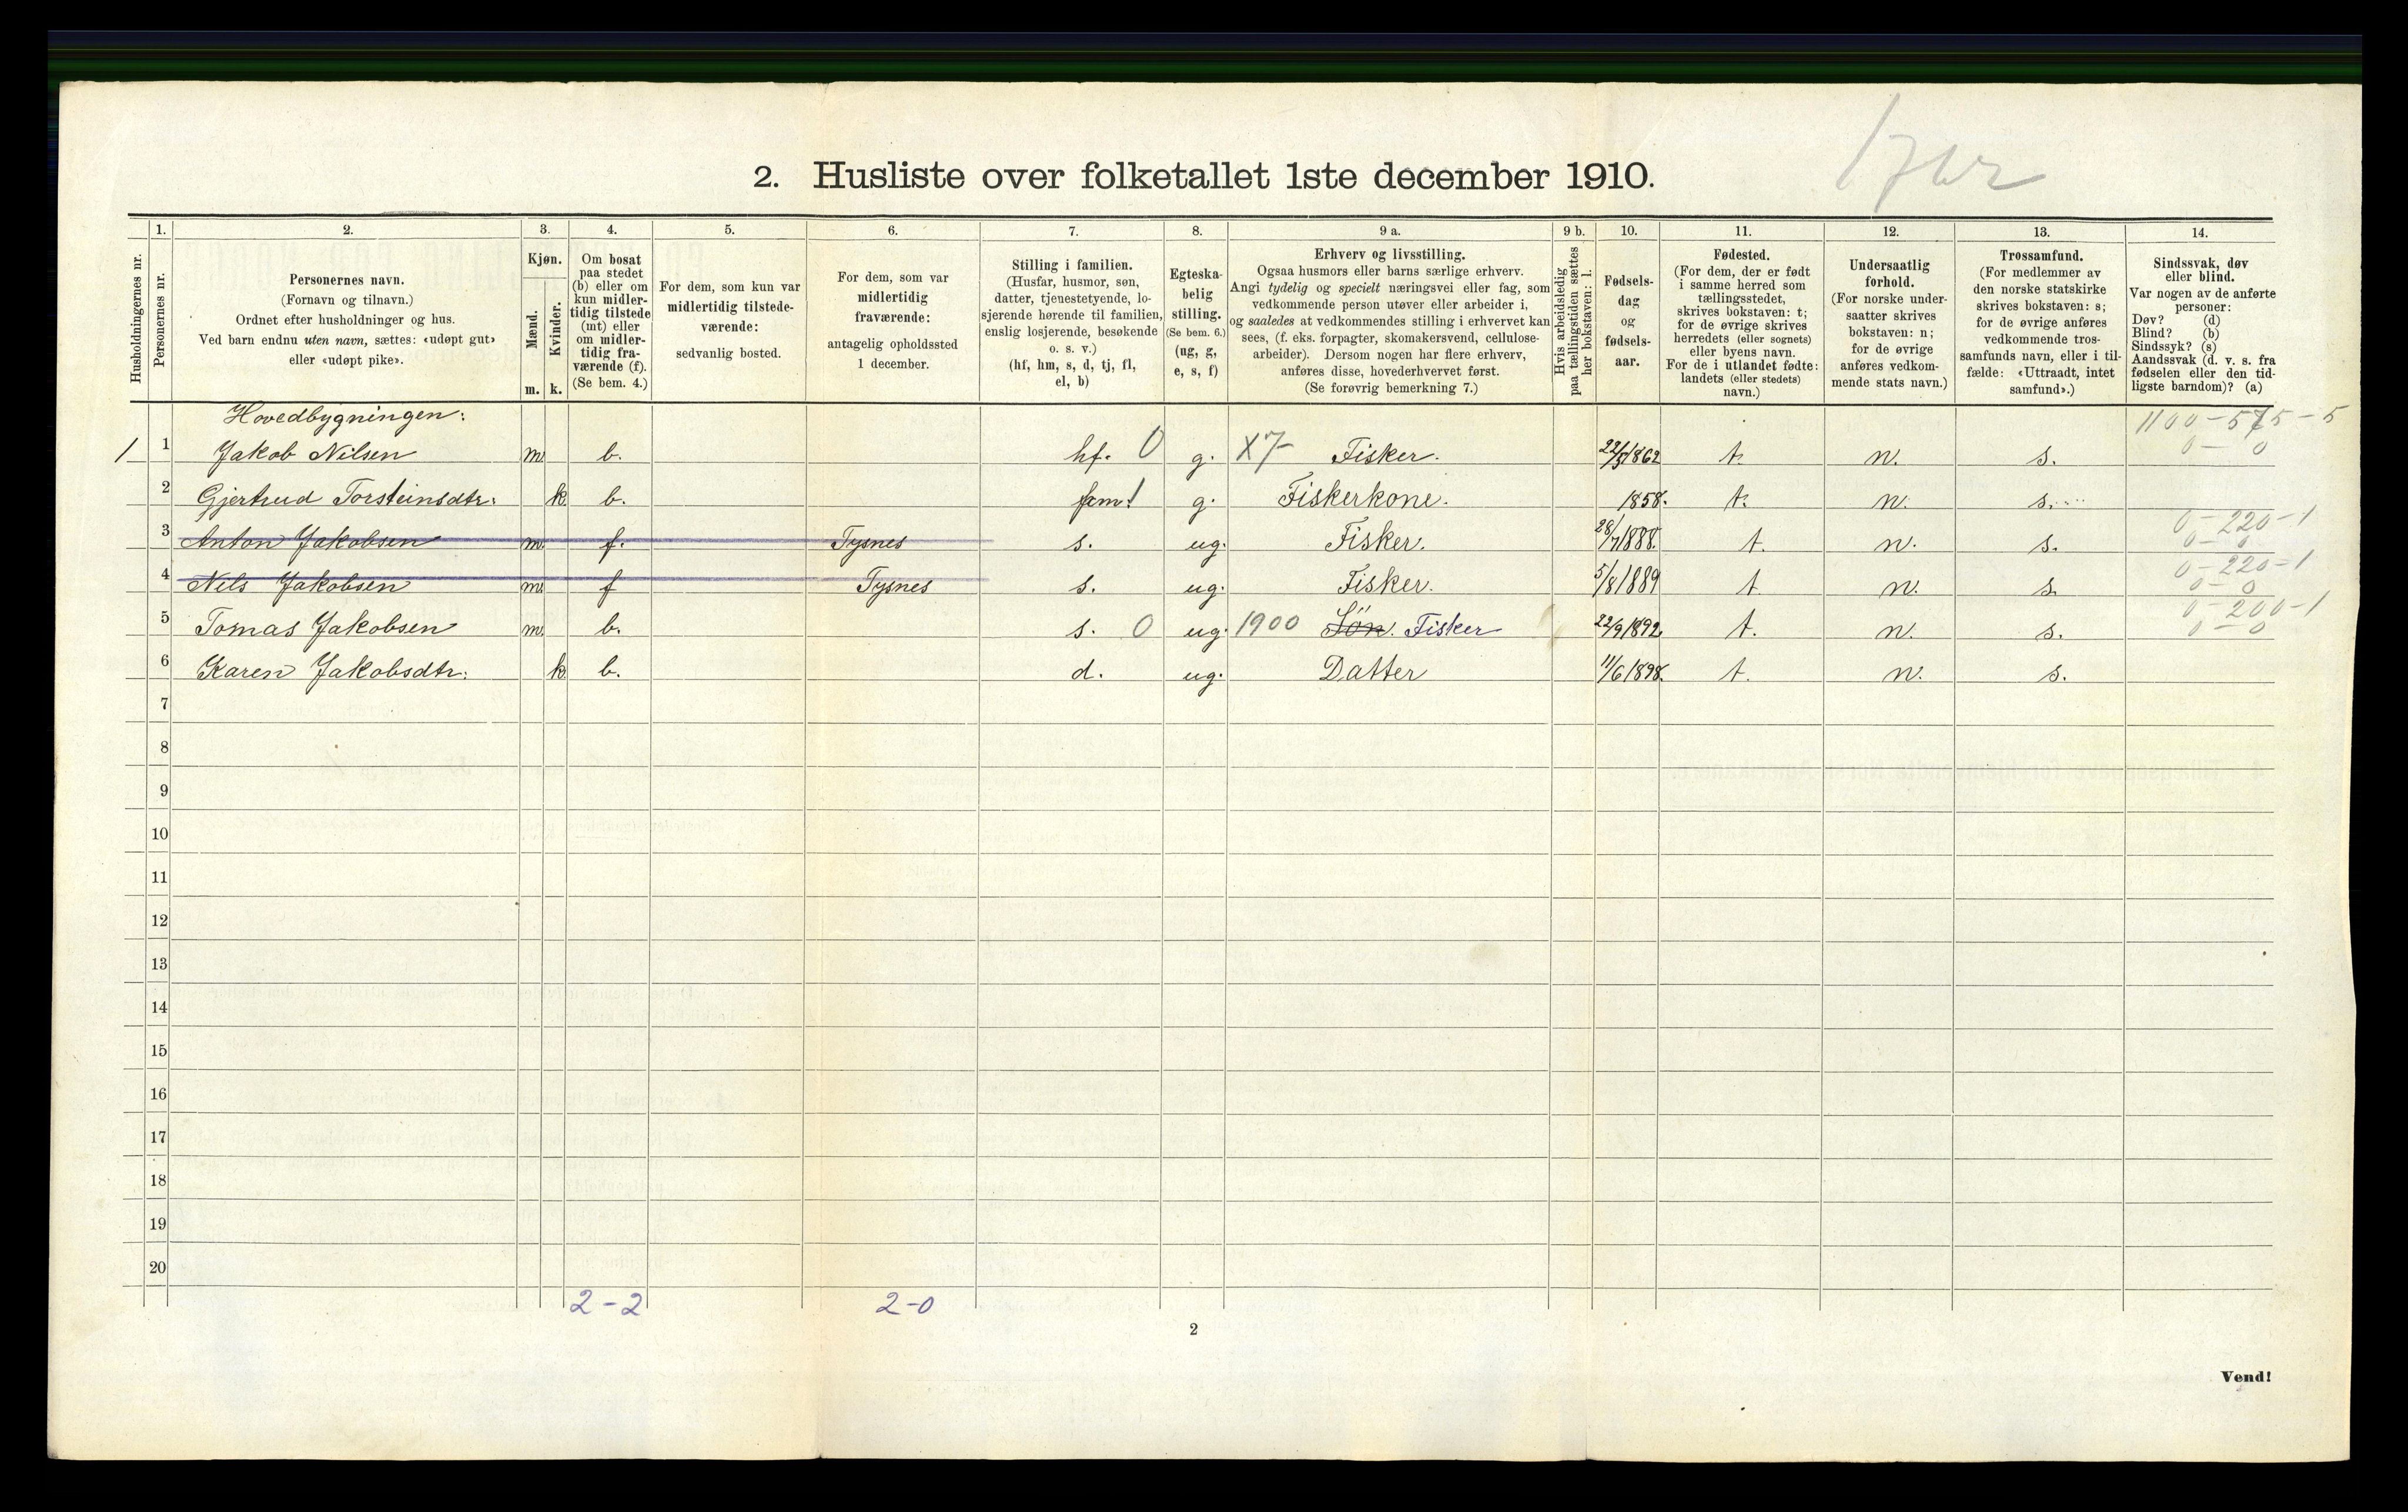 2. Husliste over folketallet 1ste december 1910.
Husholdningernes nr.
1.
Personernes nr.
2.
Personernes navn.
(Fornavn og tilnavn.)
Ordnet efter husholdninger og hus.
Ved barn endnu uten navn, sættes: «udøpt gut»
eller «udøpt pike».
3.
Kjøn.
Mænd.
Kvinder.
m. k.
4.
Om bosat
paa stedet
(b) eller om
kun midler-
tidig tilstede
(mt) eller
om midler-
tidig fra-
værende (f).
(Se bem. 4.)
5.
For dem, som kun var
midlertidig tilstede-
værende:
sedvanlig bosted.
6.
For dem, som var
midlertidig
fraværende:
antagelig opholdssted
1 december.
7.
Stilling i familien.
(Husfar, husmor, søn,
datter, tjenestetyende, lo-
sjerende hørende til familien,
enslig losjerende, besøkende
o. s. v.)
(hf, hm, s, d, tj, fl,
el, b)
8.
Egteska-
belig
stilling.
(Se bem. 6.)
(ug, g,
e, s, f)
9 a.
Erhverv og livsstilling.
Ogsaa husmors eller barns særlige erhverv.
Angi tydelig og specielt næringsvei eller fag, som
vedkommende person utøver eller arbeider i,
og saaledes at vedkommendes stilling i erhvervet kan
sees, (f. eks. forpagter, skomakersvend, cellulose-
arbeider). Dersom nogen har flere erhverv,
anføres disse, hovederhvervet først.
(Se forøvrig bemerkning 7.)
9 b.
Hvis arbeidsledig
paa tællingstiden sættes
her bokstaven: l.
10.
Fødsels-
dag
og
fødsels-
aar.
11.
Fødested.
(For dem, der er født
i samme herred som
tællingsstedet,
skrives bokstaven: t;
for de øvrige skrives
herredets (eller sognets)
eller byens navn.
For de i utlandet fødte:
landets (eller stedets)
navn.)
12.
Undersaatlig
forhold.
(For norske under-
saatter skrives
bokstaven: n;
for de øvrige
anføres vedkom-
mende stats navn.)
13.
Trossamfund.
(For medlemmer av
den norske statskirke
skrives bokstaven: s;
for de øvrige anføres
vedkommende tros-
samfunds navn, eller i til-
fælde: «Uttraadt, intet
samfund».)
14.
Sindssvak, døv
eller blind.
Var nogen av de anførte
personer:
Døv? (d)
Blind? (b)
Sindssyk? (s)
Aandssvak (d. v. s. fra
fødselen eller den tid-
ligste barndom)? (a)
Hovedbygningen:
1100 - 575 - 5
1 1 Jakob Nilsen m. b. hf. 0 g. X7- Fisker. 22/5 1862 t. n. s. 0 - 0
2 Gjertrud Torsteinsdtr: k. b. g. Fiskerkone. 1858. t. n. s.
0 - 220 - 1
3 Anton Jakobsen m. f. Tysnes s. ug. Fisker. 28/7 1888. t. n. s. 0 - 0
0 - 220 - 1
4 Nils Jakobsen m. f Tysnes s. ug. Fisker. 5/8 1889 t. n. s. 0 - 0
0 - 200 - 1
5 Tomas Jakobsen m. b. s. 0 ug. 1900 Sön. Fisker 22/9 1892. t. n. s. 0 - 0
6 Karen Jakobsdtr: k. b. d. ug. Datter 11/6 1898. t. n. s.
7
8
9
10
11
12
13
14
15
16
17
18
19
20
2 - 2 2 - 0
2
Vend!